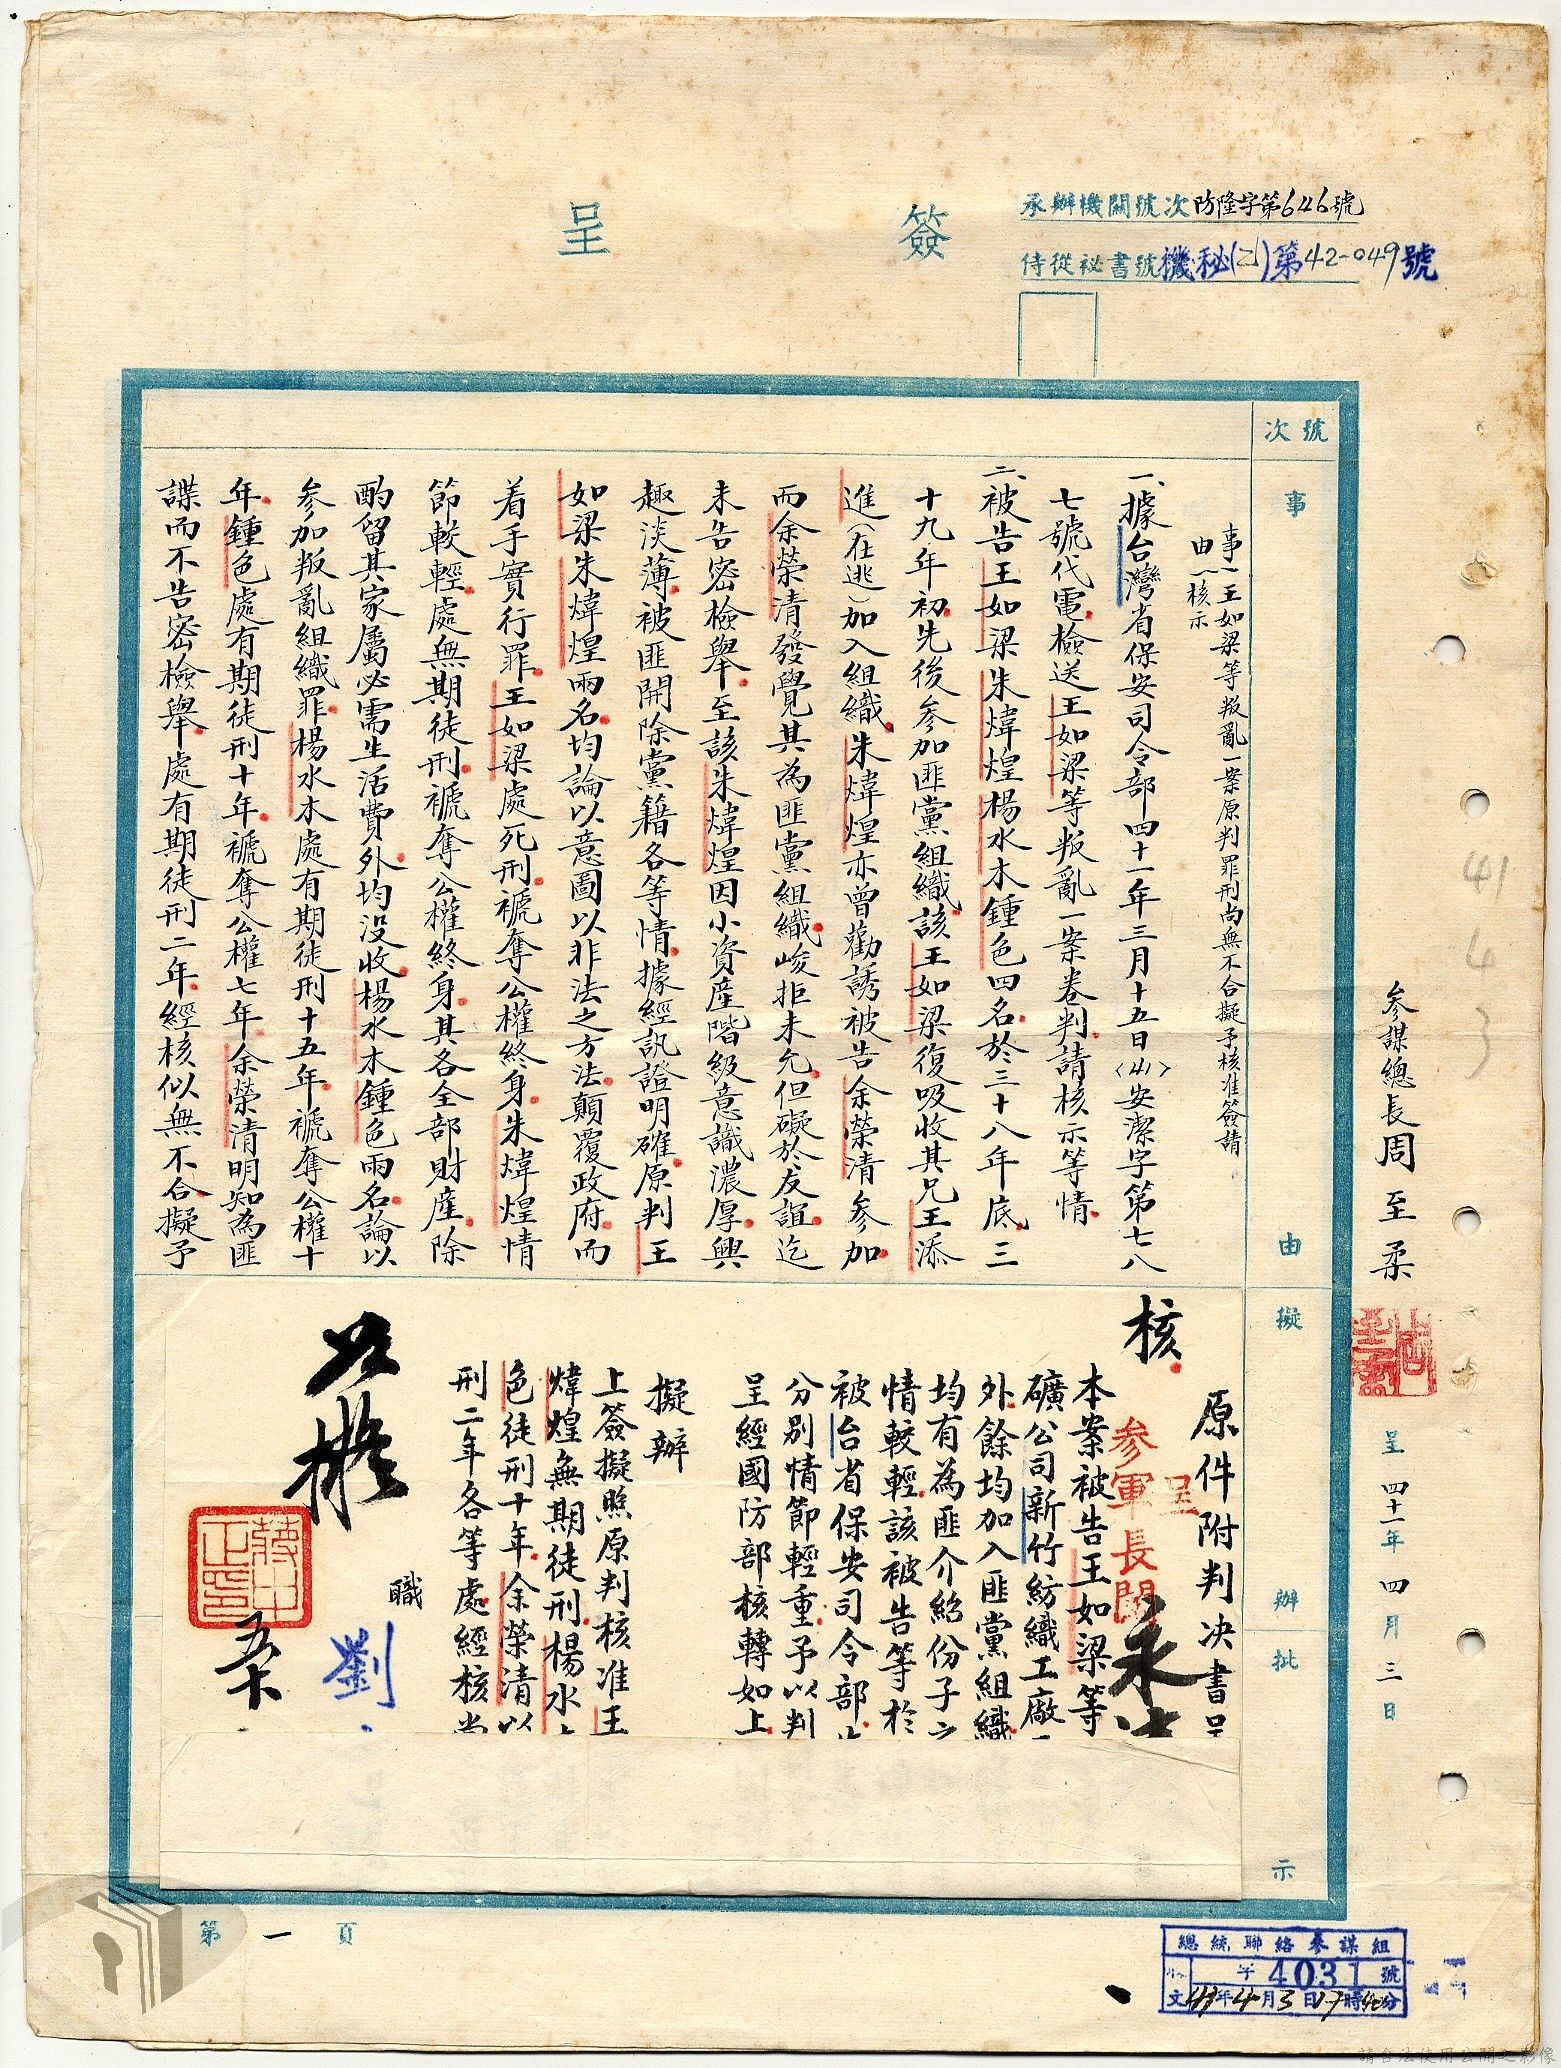 簽呈
承辦機關號次防隆字第646號
侍從祕書號機秘(乙)第42-049號
參謀總長周至柔
呈四十一年四月三日
41
4
3
號次
事由
擬辦
批示
事由
王如梁等叛亂一案原判罪刑尚無不合擬予核准簽請
核示
一、據台灣省保安司令部四十一年三月十五日(41)安潔字第七八
七號代電檢送王如梁等叛亂一案卷判請核示等情
二、被告王如梁朱煒煌楊水木鍾色四名於三十八年底三
十九年初先後參加匪黨組織該王如梁復吸收其兄王添
進(在逃)加入組織朱煒煌亦曾勸誘被告余榮清參加
而余榮清發覺其為匪黨組織峻拒未允但礙於友誼迄
未告密檢舉至該朱煒煌因小資產階級意識濃厚興
趣淡薄被匪開除黨籍各等情據經訊證明確原判王
如梁朱煒煌兩名均論以意圖以非法之方法顛覆政府而
着手實行罪王如梁處死刑褫奪公權終身朱煒煌情
節較輕處無期徒刑褫奪公權終身其各全部財產除
酌留其家屬必需生活費外均没收楊水木鍾色兩名論以
參加叛亂組織罪楊水木處有期徒刑十五年褫奪公權十
年鍾色處有期徒刑十年褫奪公權七年余榮清明知為匪
諜而不告密檢舉處有期徒刑二年經核似無不合擬予
核
原件附判决書呈
呈
參軍長閱
本案被告王如梁等
礦公司新竹紡織工廠
外餘均加入匪黨組織
均有為匪介紹份子之
情較輕該被告等於
被台省保安司令部
分別情節輕重予以判
呈經國防部核轉如上
擬辦
上簽擬照原判核准王
煒煌無期徒刑楊水
色徒刑十年余榮清以
刑二年各等處經核尚
職
劉
如擬
蔣中正印
第一頁
總統聯絡參謀組
4031號
文41年4月3日17時40分
請合法使用公開之影像